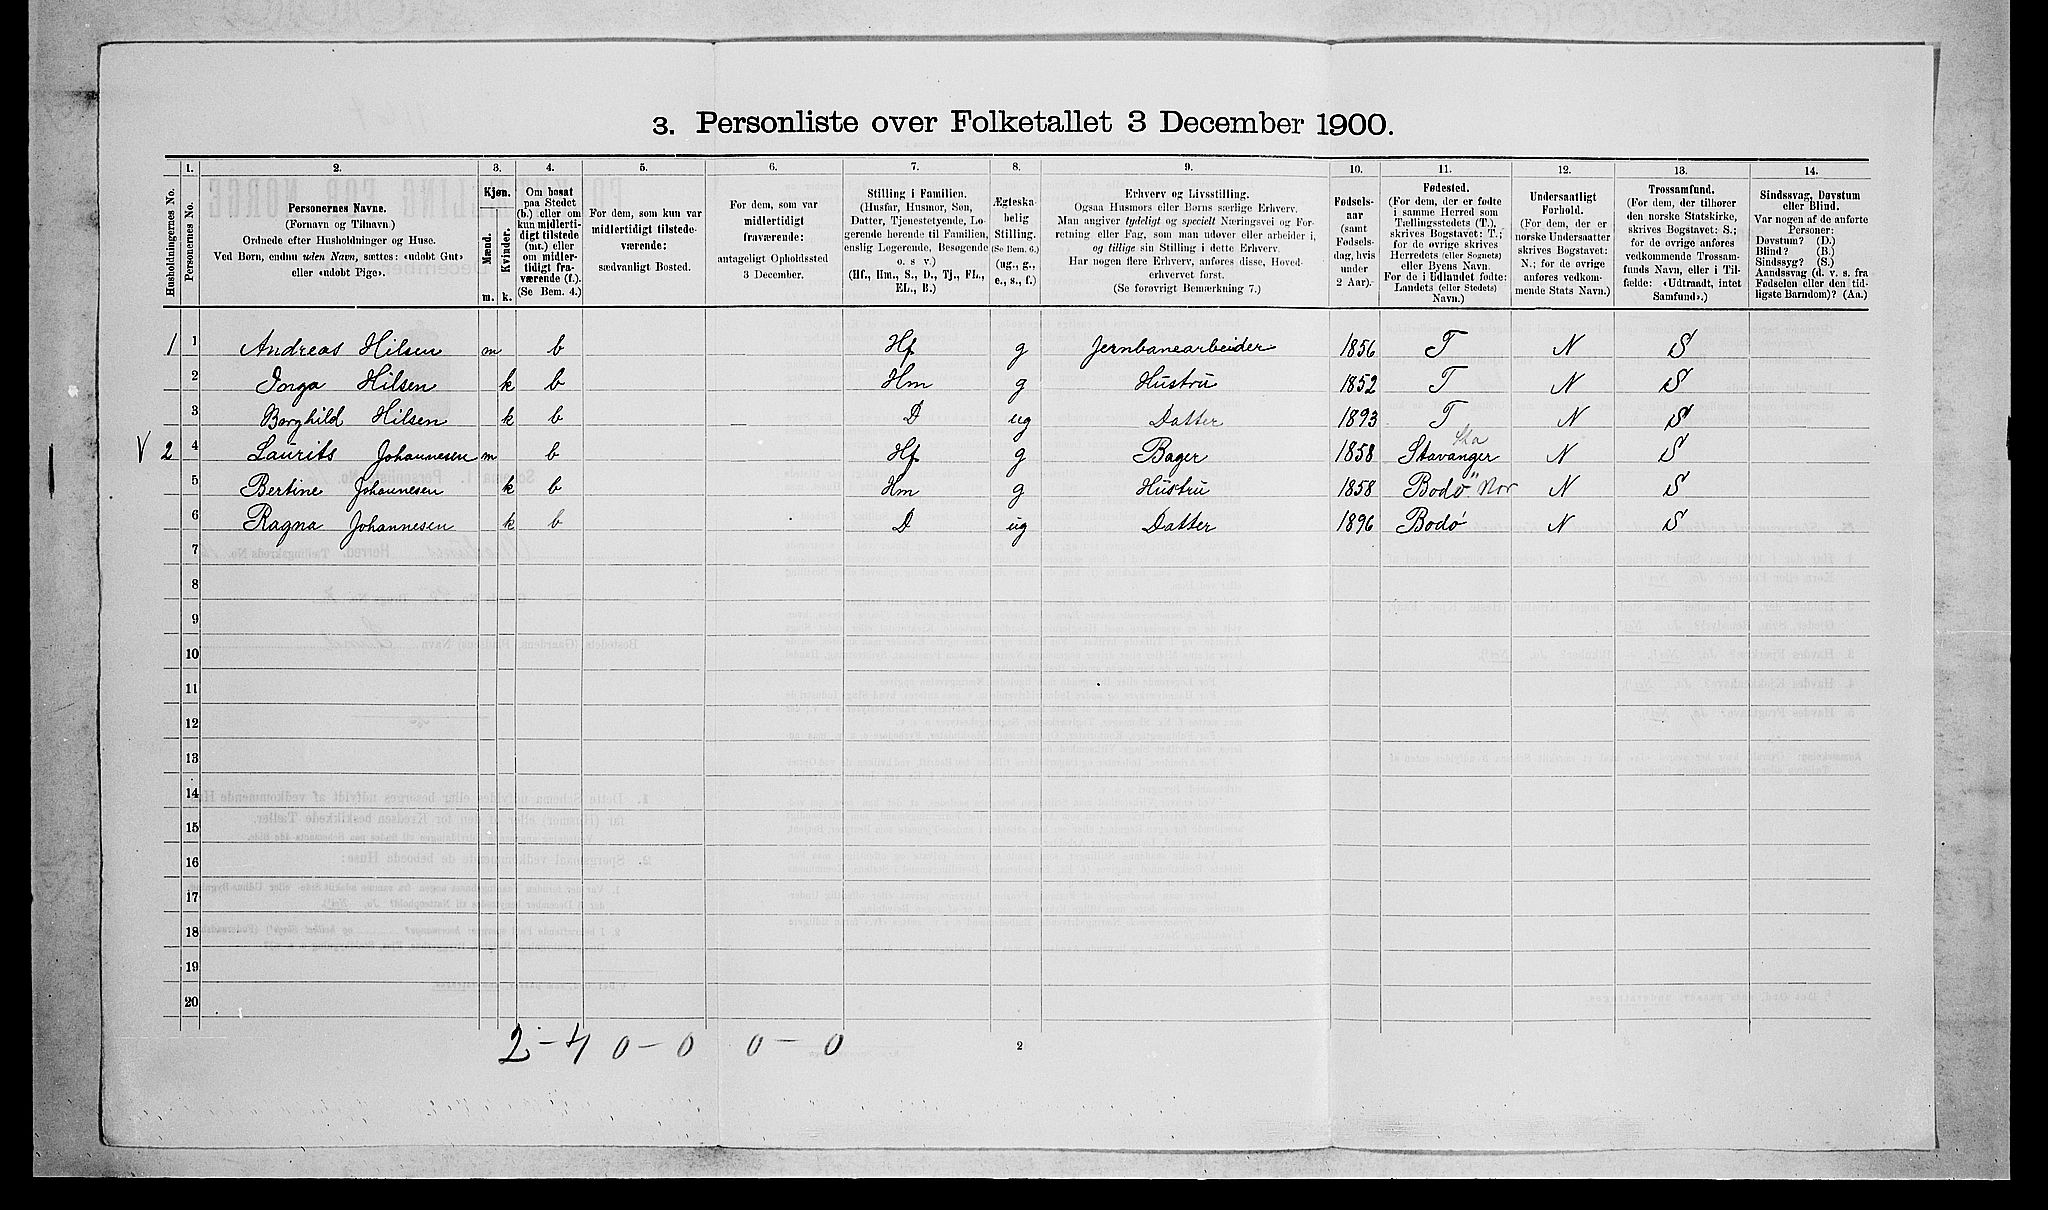 3. Personliste over Folketallet 3 December 1900.
1. 2. 3. 4. 5. 6. 7. 8. 9. 10. 11. 12. 13. 14.
Husholdningernes No.
Personernes No.
Personernes Navne.
(Fornavn og Tilnavn.)
Ordnede efter Husholdninger og Huse.
Ved Børn, endnu uden Navn, sættes: «udøbt Gut»
eller «udøbt Pige».
Kjøn.
Mænd. Kvinder.
m. k.
Om bosat
paa Stedet
(b.) eller om
kun midlerti-
digt tilstede
(mt.) eller
om midler-
tidigt fra-
værende (f.).
(Se Bem. 4.)
For dem, som kun var
midlertidigt tilstede-
værende:
sædvanligt Bosted.
For dem, som var
midlertidigt
fraværende:
antageligt Opholdssted
3 December.
Stilling i Familien.
(Husfar, Husmor, Søn,
Datter, Tjenestetyende, Lo-
gerende hørende til Familien,
enslig Logerende, Besøgende
o. s. v.)
(Hf., Hm., S., D., Tj., FL.,
EL., B.)
Ægteska-
belig
Stilling.
(Se Bem. 6.)
(ug., g.,
e., s., f.)
Erhverv og Livsstilling.
Ogsaa Husmors eller Børns særlige Erhverv.
Man angiver tydeligt og specielt Næringsvei og For-
retning eller Fag, som man udøver eller arbeider i,
og tillige sin Stilling i dette Erhverv.
Har nogen flere Erhverv, anføres disse, Hoved-
erhvervet først.
(Se forøvrigt Bemærkning 7.)
Fødsels-
aar
(samt
Fødsels-
dag, hvis
under
2 Aar).
Fødested.
(For dem, der er fødte
i samme Herred som
Tællingsstedets (T.),
skrives Bogstavet: T.;
for de øvrige skrives
Herredets (eller Sognets)
eller Byens Navn.
For de i Udlandet fødte:
Landets (eller Stedets)
Navn.)
Undersaatligt
Forhold.
(For dem, der er
norske Undersaatter
skrives Bogstavet:
N.; for de øvrige
anføres vedkom-
mende Stats Navn.)
Trossamfund.
(For dem, der tilhører
den norske Statskirke,
skrives Bogstavet: S.;
for de øvrige anføres
vedkommende Trossam-
funds Navn, eller i Til-
fælde: «Udtraadt, intet
Samfund».)
Sindssvag, Døvstum
eller Blind.
Var nogen af de anførte
Personer:
Døvstum? (D.)
Blind? (B.)
Sindssyg? (S.)
Aandssvag (d. v. s. fra
Fødselen eller den tid-
ligste Barndom)? (Aa.)
1 1 Andreas Hilsen m b Hf g Jernbanearbeider 1856 T N S
2 Inga Hilsen k b Hm g Hustru 1852 T N S
3 Borghild Hilsen k b D ug Datter 1893 T N S
Sta
V 2 4 Laurits Johannesen m b Hf g Bager 1858 Stavanger N S
5 Bertine Johannesen k b Hm g Hustru 1858 Bodø Nor N S
6 Ragna Johannesen k b D ug Datter 1896 Bodø N S
7
8
9
10
11
12
13
14
15
16
17
18
19
20
2 - 4 0 - 0 0 - 0
2